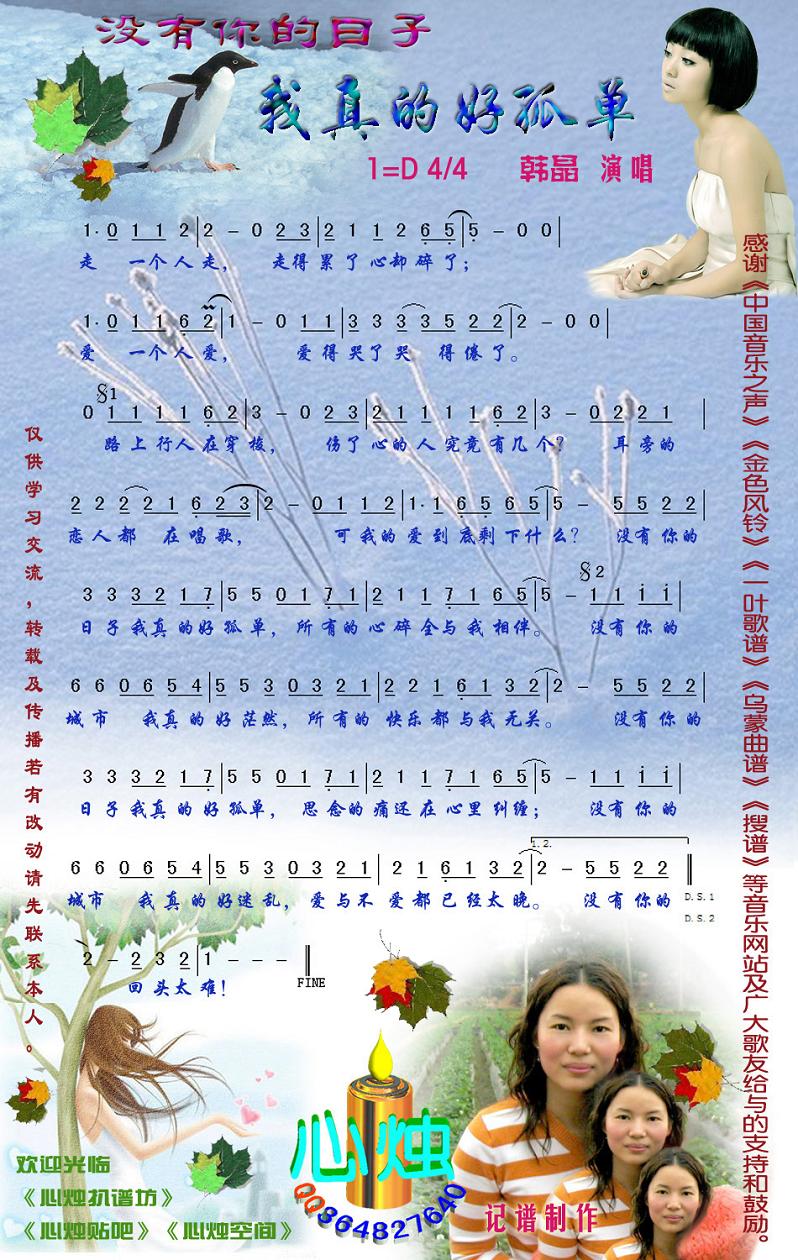 没有你的日子
我真的好孤单
1=D 4/4 韩晶 演唱
1· 0 1 1 2 | 2 - 0 2 3 | 2 1 1 2 6 5 | 5 - 0 0 |
走 一个人走， 走得累了心却碎了；
1· 0 1 1 6 2 | 1 - 0 1 1 | 3 3 3 3 5 2 2 | 2 - 0 0 |
爱 一个人爱， 爱得哭了哭 得倦了。
𝄋1
0 1 1 1 1 6 2 | 3 - 0 2 3 | 2 1 1 1 1 6 2 | 3 - 0 2 2 1 |
路上行人在穿梭， 伤了心的人究竟有几个？ 耳旁的
2 2 2 2 1 6 2 2 3 | 2 - 0 1 1 2 | 1· 1 6 5 6 5 | 5 - 5 5 2 2 |
恋人都 在唱歌， 可我的爱到底剩下什么？ 没有你的
𝄋2
3 3 3 2 1 7 | 5 5 0 1 7 1 | 2 1 1 7 1 6 5 | 5 - 1 1 i i |
日子我真的好孤单，所有的心碎全与我相伴。 没有你的
6 6 0 6 5 4 | 5 5 3 0 3 2 1 | 2 2 1 6 1 3 2 | 2 - 5 5 2 2 |
城市 我真的好茫然，所有的快乐都与我无关。 没有你的
3 3 3 2 1 7 | 5 5 0 1 7 1 | 2 1 1 7 1 6 5 | 5 - 1 1 i i |
日子我真的好孤单， 思念的痛还在心里纠缠； 没有你的
1. 2.
6 6 0 6 5 4 | 5 5 3 0 3 2 1 | 2 1 6 1 3 2 | 2 - 5 5 2 2 ‖
城市 我真的好迷乱，爱与不爱都已经太晚。 没有你的
D.S.1
D.S.2
2 - 2 3 2 | 1 - - - ‖
回头太难！
FINE
仅供学习交流，转载及传播若有改动请先联系本人。
感谢《中国音乐之声》《金色风铃》《一叶歌谱》《乌蒙曲谱》《搜谱》等音乐网站及广大歌友给与的支持和鼓励。
欢迎光临
《心烛扒谱坊》
《心烛贴吧》《心烛空间》
心烛
QQ364827640
记谱制作